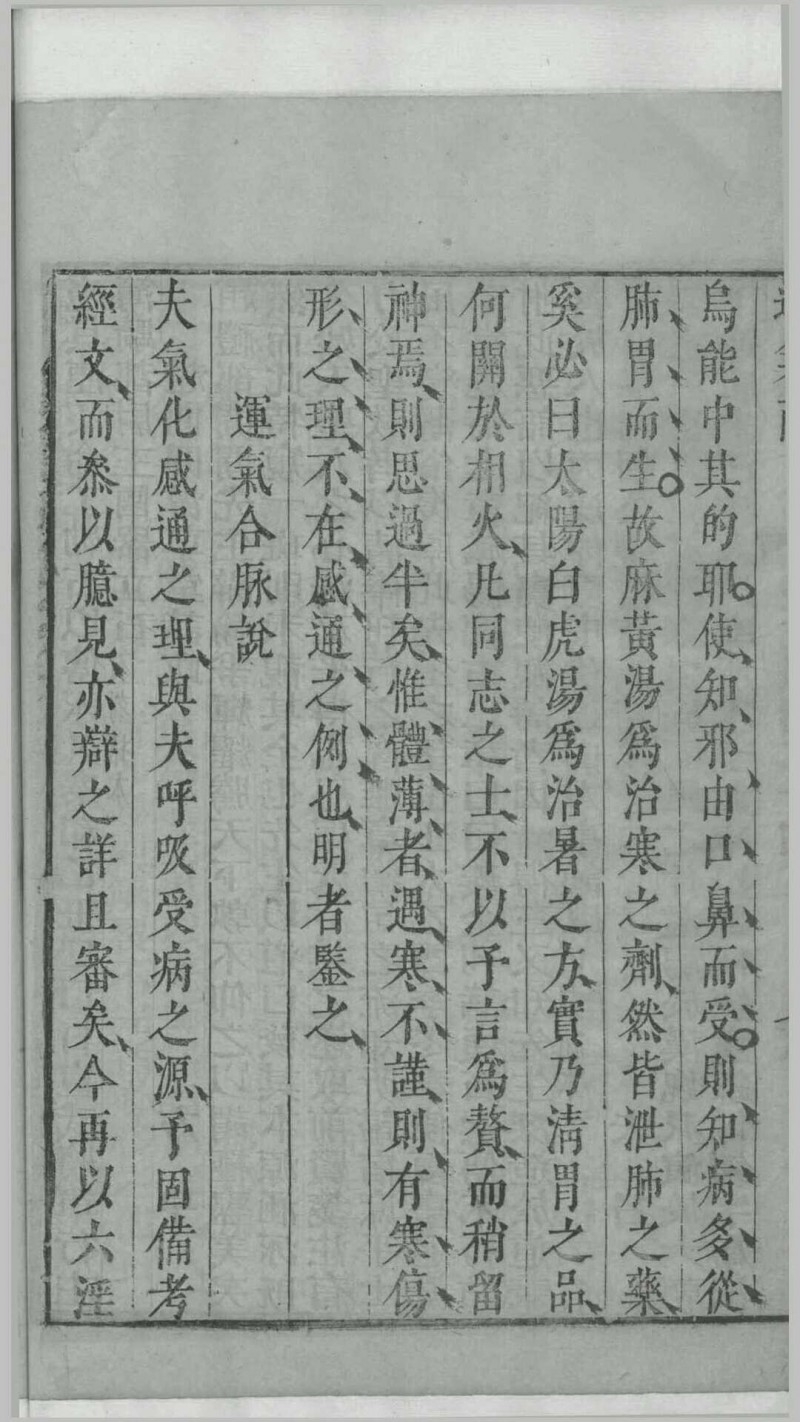 烏能中其的耶。使、知、邪由口、鼻、而、受。則、知、病、多、從、
肺、胃、而、生。故麻黃湯爲治寒之劑、然皆泄肺之藥、
奚必曰太陽白虎湯爲治暑之方、實乃清胃之品、
何關於相火、凡同志之士、不以予言爲贅、而稍留
神焉、則思過半矣、惟體、薄、者、遇、寒、不、謹、則、有寒、傷、
形、之、理、不、在、感、通、之、例、也、明者鑒之、
運氣合脉說
夫氣化感通之理、與夫呼吸受病之源、予固備考
經文、而叅以臆見、亦辯之詳且審矣、今再以六淫